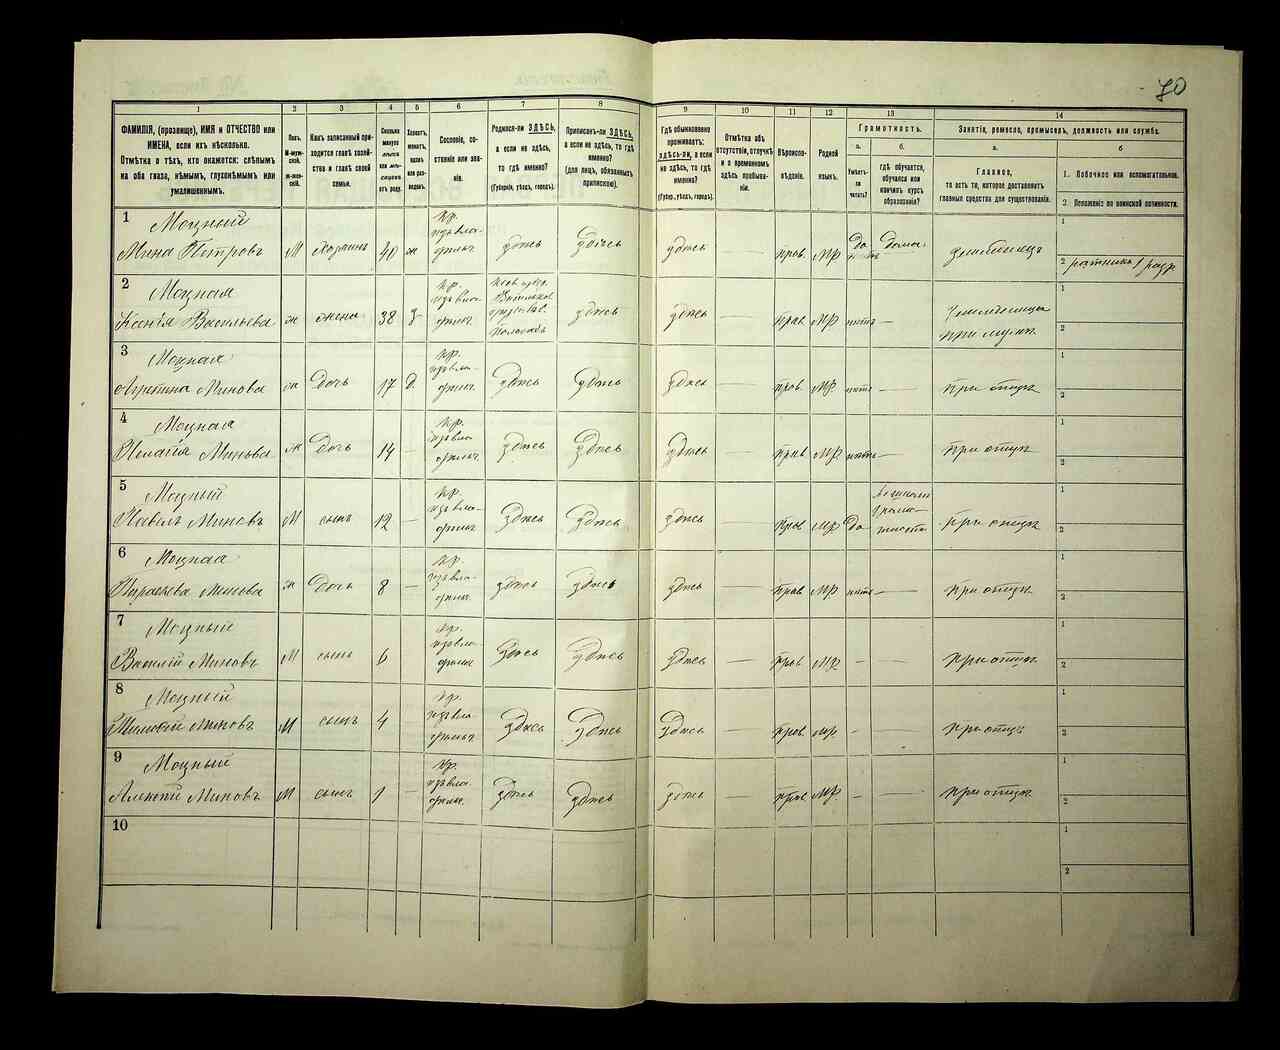 70
1 2 3 4 5 6 7 8 9 10 11 12 13 14
ФАМИЛІЯ, (прозвище), ИМЯ и ОТЧЕСТВО или
ИМЕНА, если ихъ нѣсколько.
Отмѣтка о тѣхъ, кто окажется: слѣпымъ
на оба глаза, нѣмымъ, глухонѣмымъ или
умалишеннымъ.
Полъ.
М-мужской.
Ж-женскій.
Какъ записанный приходится главѣ хозяйства и главѣ своей
семьи.
Сколько
минуло
лѣтъ
или мѣсяцевъ
отъ роду.
Холостъ,
женатъ,
вдовъ
или разведенъ.
Сословіе, состояніе или званіе.
Родился-ли ЗДѢСЬ,
а если не здѣсь,
то гдѣ именно?
(Губернія, уѣздъ, городъ).
Приписанъ-ли ЗДѢСЬ,
а если не здѣсь, то гдѣ
именно?
(для лицъ, обязанныхъ
припискою).
Гдѣ обыкновенно
проживаетъ:
здѣсь-ли, а если
не здѣсь, то гдѣ
именно?
(Губер., уѣздъ, городъ).
Отмѣтка объ
отсутствіи, отлучкѣ
и о временномъ
здѣсь пребываніи.
Вѣроисповѣданіе.
Родной
языкъ.
Грамотность.
а. б.
Умѣетъ-ли
читать?
гдѣ обучается,
обучался или
кончилъ курсъ
образованія?
Занятіе, ремесло, промыселъ, должность или служба.
а. б
Главное,
то есть то, которое доставляетъ
главныя средства для существованія.
1. Побочное или вспомогательное.
2. Положеніе по воинской повинности.
1 Моцный
Мина Петровъ М Хозяинъ 40 ж кр. изъ владѣльч здѣсь здѣсь здѣсь — прав. МР да дома земледѣлецъ
1
2 ратникъ 1 разр
2 Моцная
Ксенія Васильева ж жена 38 з кр. изъ владѣльч здѣсь здѣсь — прав МР нѣтъ —
при мужѣ
1
2
3 Моцная
Минова ж дочь 17 д кр. изъ владѣльч здѣсь здѣсь здѣсь — прав МР нѣтъ — при отцѣ
1
2
4 Моцная
Пелагія Минова ж дочь 14 — кр. изъ владѣльч здѣсь здѣсь здѣсь — прав МР нѣтъ — при отцѣ
1
2
5 Моцный
Павелъ Миновъ М сынъ 12 — кр. изъ владѣльч здѣсь здѣсь здѣсь — прав МР да при отцѣ
1
2
6 Моцная
Параскева Минова ж дочь 8 — кр. изъ владѣльч здѣсь здѣсь здѣсь — прав МР нѣтъ — при отцѣ
1
2
7 Моцный
Василій Миновъ М сынъ 6 — кр. изъ владѣльч здѣсь здѣсь здѣсь — прав МР — — при отцѣ
1
2
8 Моцный
Миновъ М сынъ 4 — кр. изъ владѣльч здѣсь здѣсь здѣсь — прав МР — — при отцѣ
1
2
9 Моцный
Алексѣй Миновъ М сынъ 1 — кр. изъ владѣльч здѣсь здѣсь здѣсь — прав МР — — при отцѣ
1
2
10
1
2